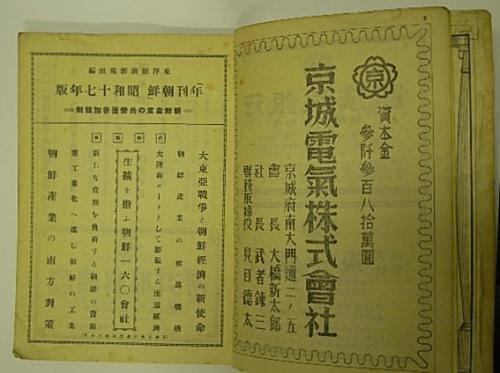 東洋經濟新報社編
年刊朝鮮 昭和十七年版
朝鮮產業の共榮圈參加體制
大東亞戰爭と朝鮮經濟の新使命
朝鮮產業の推進機構
大陸ルートとして膨脹する運通經濟
生擴を擔ふ朝鮮一六〇會社
新たな役割を負荷する朝鮮の資源
重工業化へ進む朝鮮の工業
朝鮮產業の南方對策
京
資本金
參阡參百八拾萬圓
京城電氣株式會社
京城府南大門通二ノ五
會長 大橋新太郎
社長 武者鍊三
專務取締役 見目德太